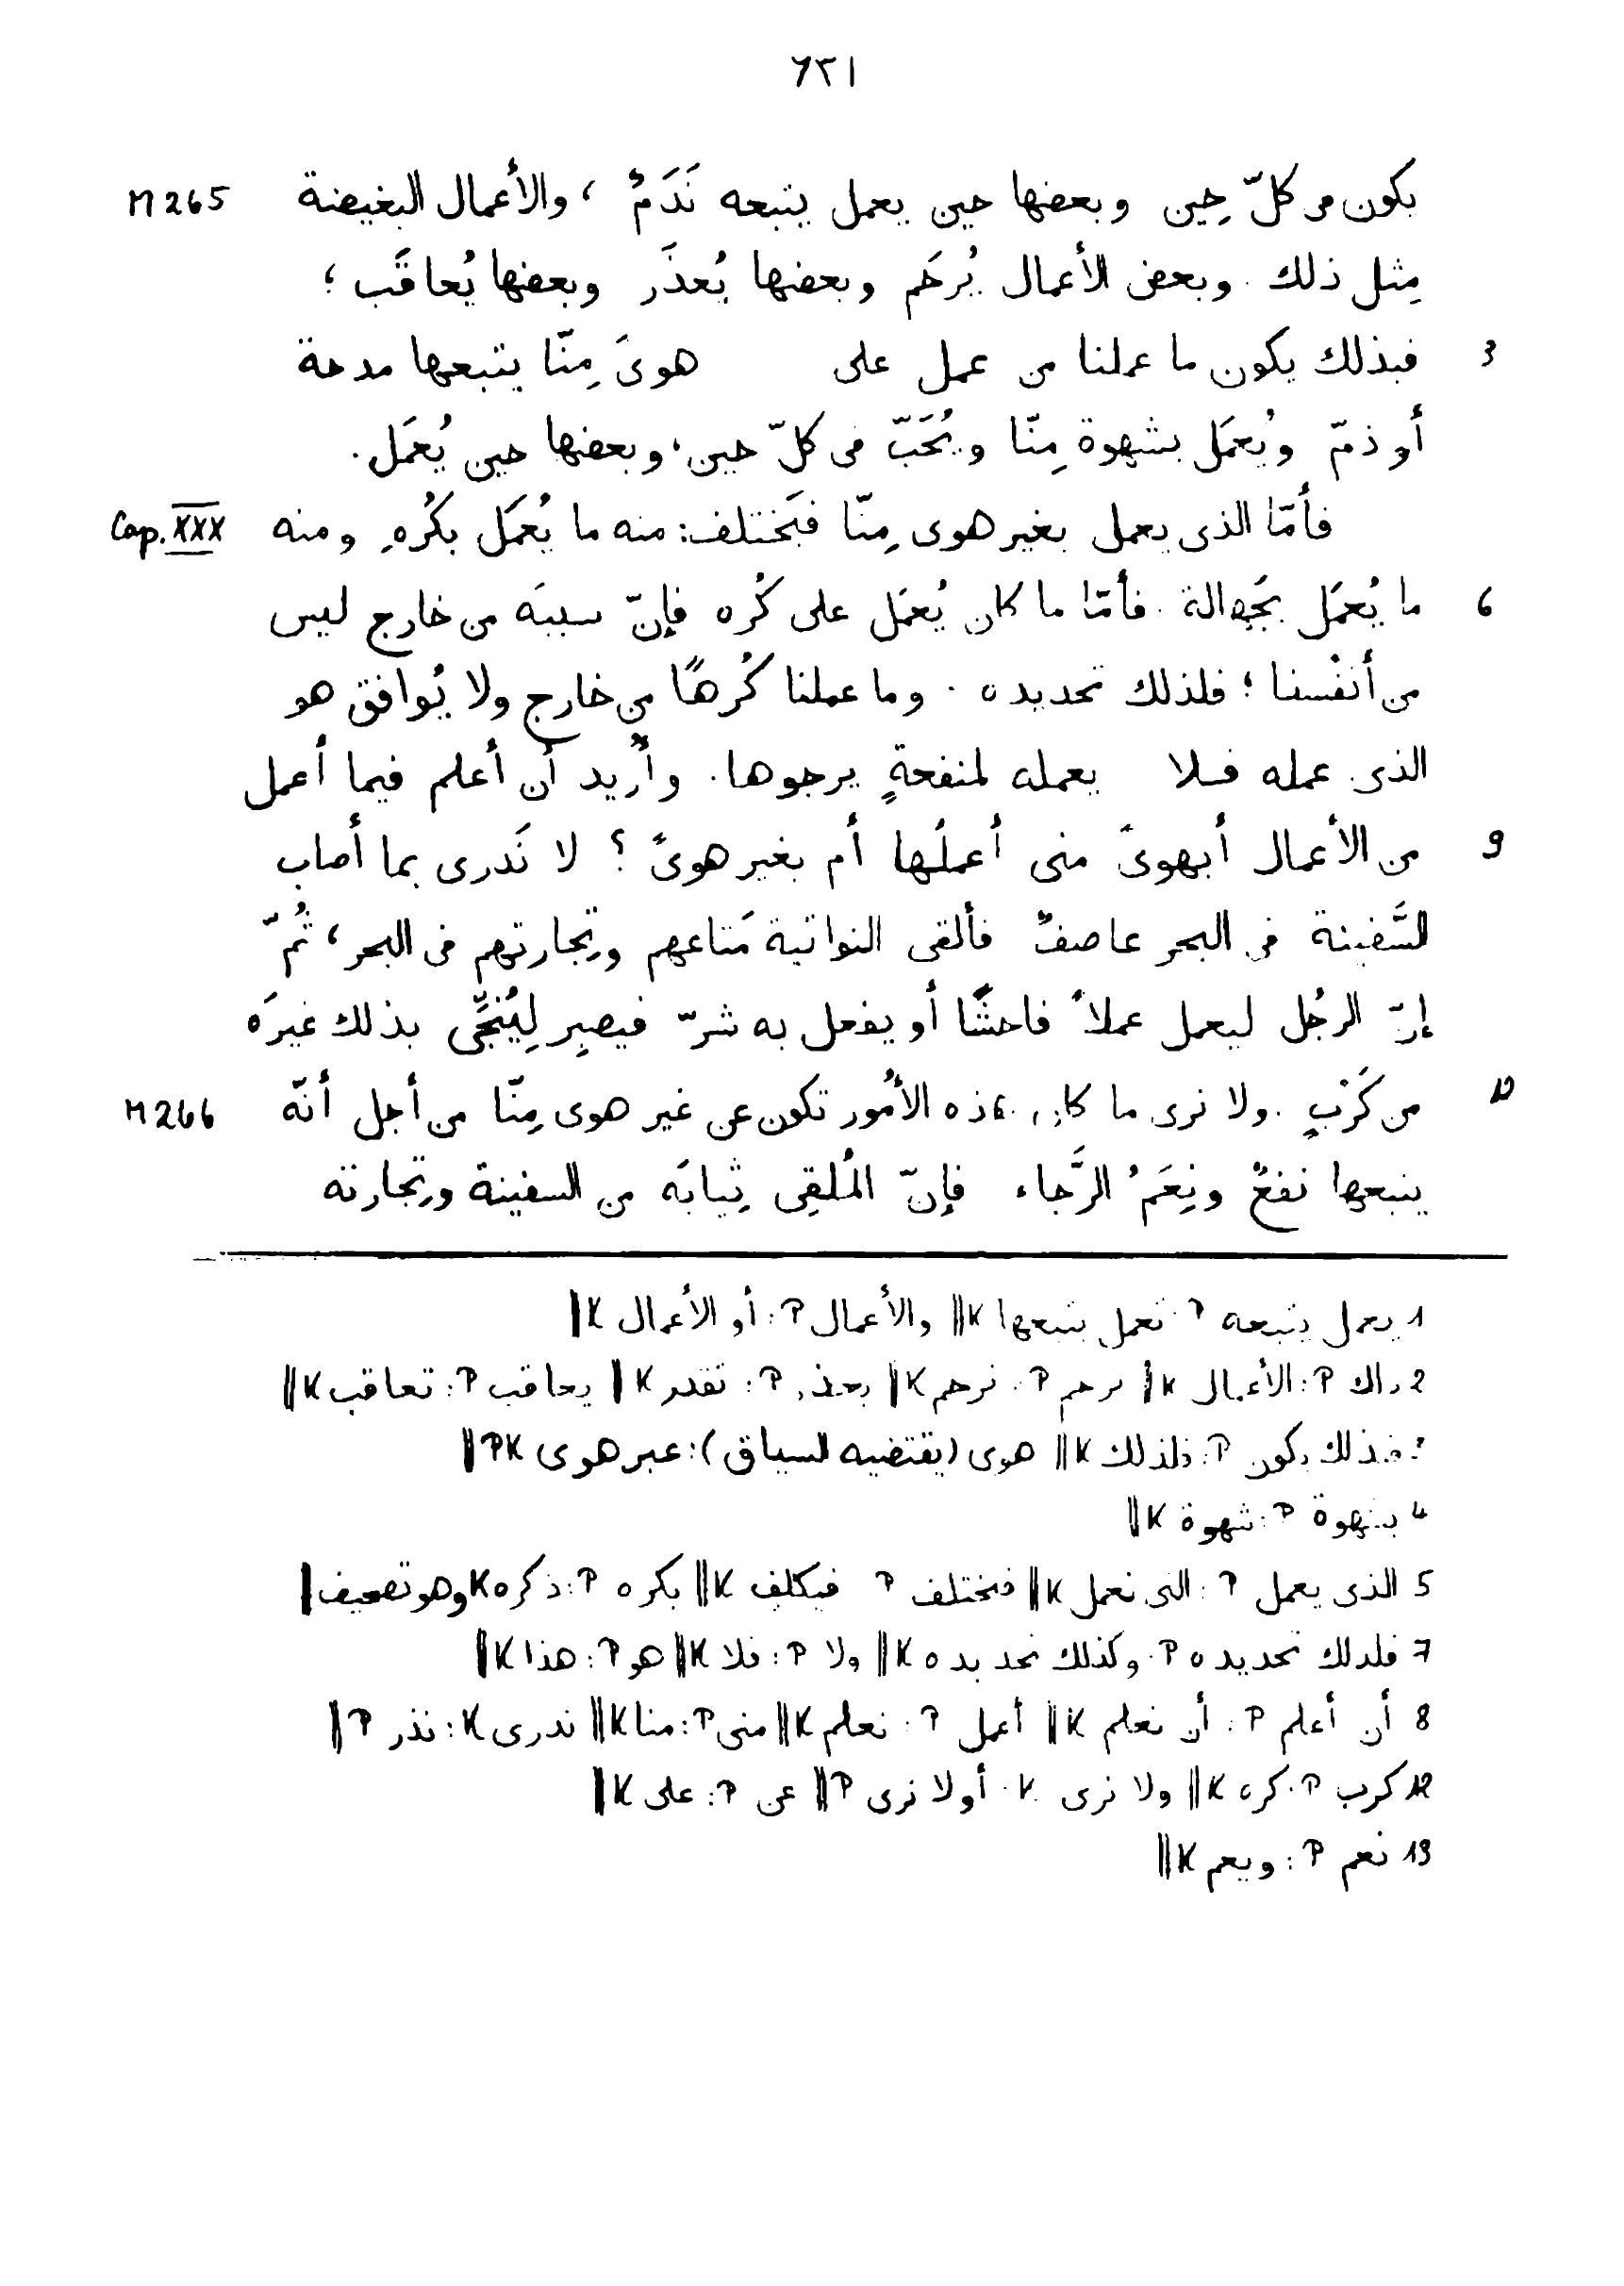 ٦٣١
يكون فى كلّ حِين وبعضها حين يعمل يتبعه نَدَمٌ ، والأعمال البغيضة M 265
مِثل ذلك . وبعض الأعمال يُرحَم وبعضها يُعذَر وبعضها يُعاقَب ؛
3 فبذلك يكون ما عملنا من عمل على هوىً مِنّا يتبعها مدحة
أو ذمّ ويُعمَل بشهوة مِنّا ويُحَبّ فى كلّ حين ، وبعضها حين يُعمَل .
فأمّا الذى يعمل بغير هوى مِنّا فيَختلف : منه ما يُعمَل بكُرهٍ ومنه Cap. XXX
6 ما يُعمَل بجَهالة . فأمّا ما كان يُعمَل على كُره فإنّ سببَه من خارج ليس
من أنفْسنا ؛ فلذلك تحديده . وما عملنا كُرهًا من خارج ولا يُوافق هو
الذى عمله فلا يعمله لمنفعةٍ يرجوها . وأُريد أن أعلم فيما أعمل
9 من الأعمال أبهوىً منى أعملُها أم بغير هوىً ؟ لا نَدرى بما أصاب
السَّفينة فى البحر عاصفٌ فألقى النواتية مَتاعهم وتِجارتهم فى البحر ، ثُمّ
إنّ الرجُل ليعمل عملاً فاحشًا أو يفعل به شرّ فيصير لِيُنجِّى بذلك غيرَه
12 من كَرْبٍ . ولا نرى ما كان هذه الأمُور تكون عن غير هوى مِنّا من أجل أنّه M 266
يتبعها نفعٌ ونِعَمُ الرَّجاء فإنّ المُلقِى ثِيابَه من السفينة وتِجارته
1 يعمل يتبعه P : تعمل يتبعها K || والأعمال P : أو الأعمال K ||
2 ذلك P : الأعمال K || يرحم P : نرحم K || يعذر P : تقدر K || يعاقب P : تعاقب K ||
3 فبذلك يكون P : فلذلك K || هوى (يقتضيه السياق) : غير هوى PK ||
4 بشهوة P : شهوة K ||
5 الذى يعمل P : التى نعمل K || فيختلف P فيكلف K || بكره P : ذكره K وهو تصحيف ||
7 فلذلك تحديده P : وكذلك تحديده K || ولا P : فلا K || هو P : هذا K ||
8 أن أعلم P : أن نعلم K || أعمل P : نعلم K || منى P : منا K || ندرى K : نذر P ||
12 كرب P : كره K || ولا نرى K : أو لا نرى P || عن P : على K ||
13 نعم P : ويعم K ||